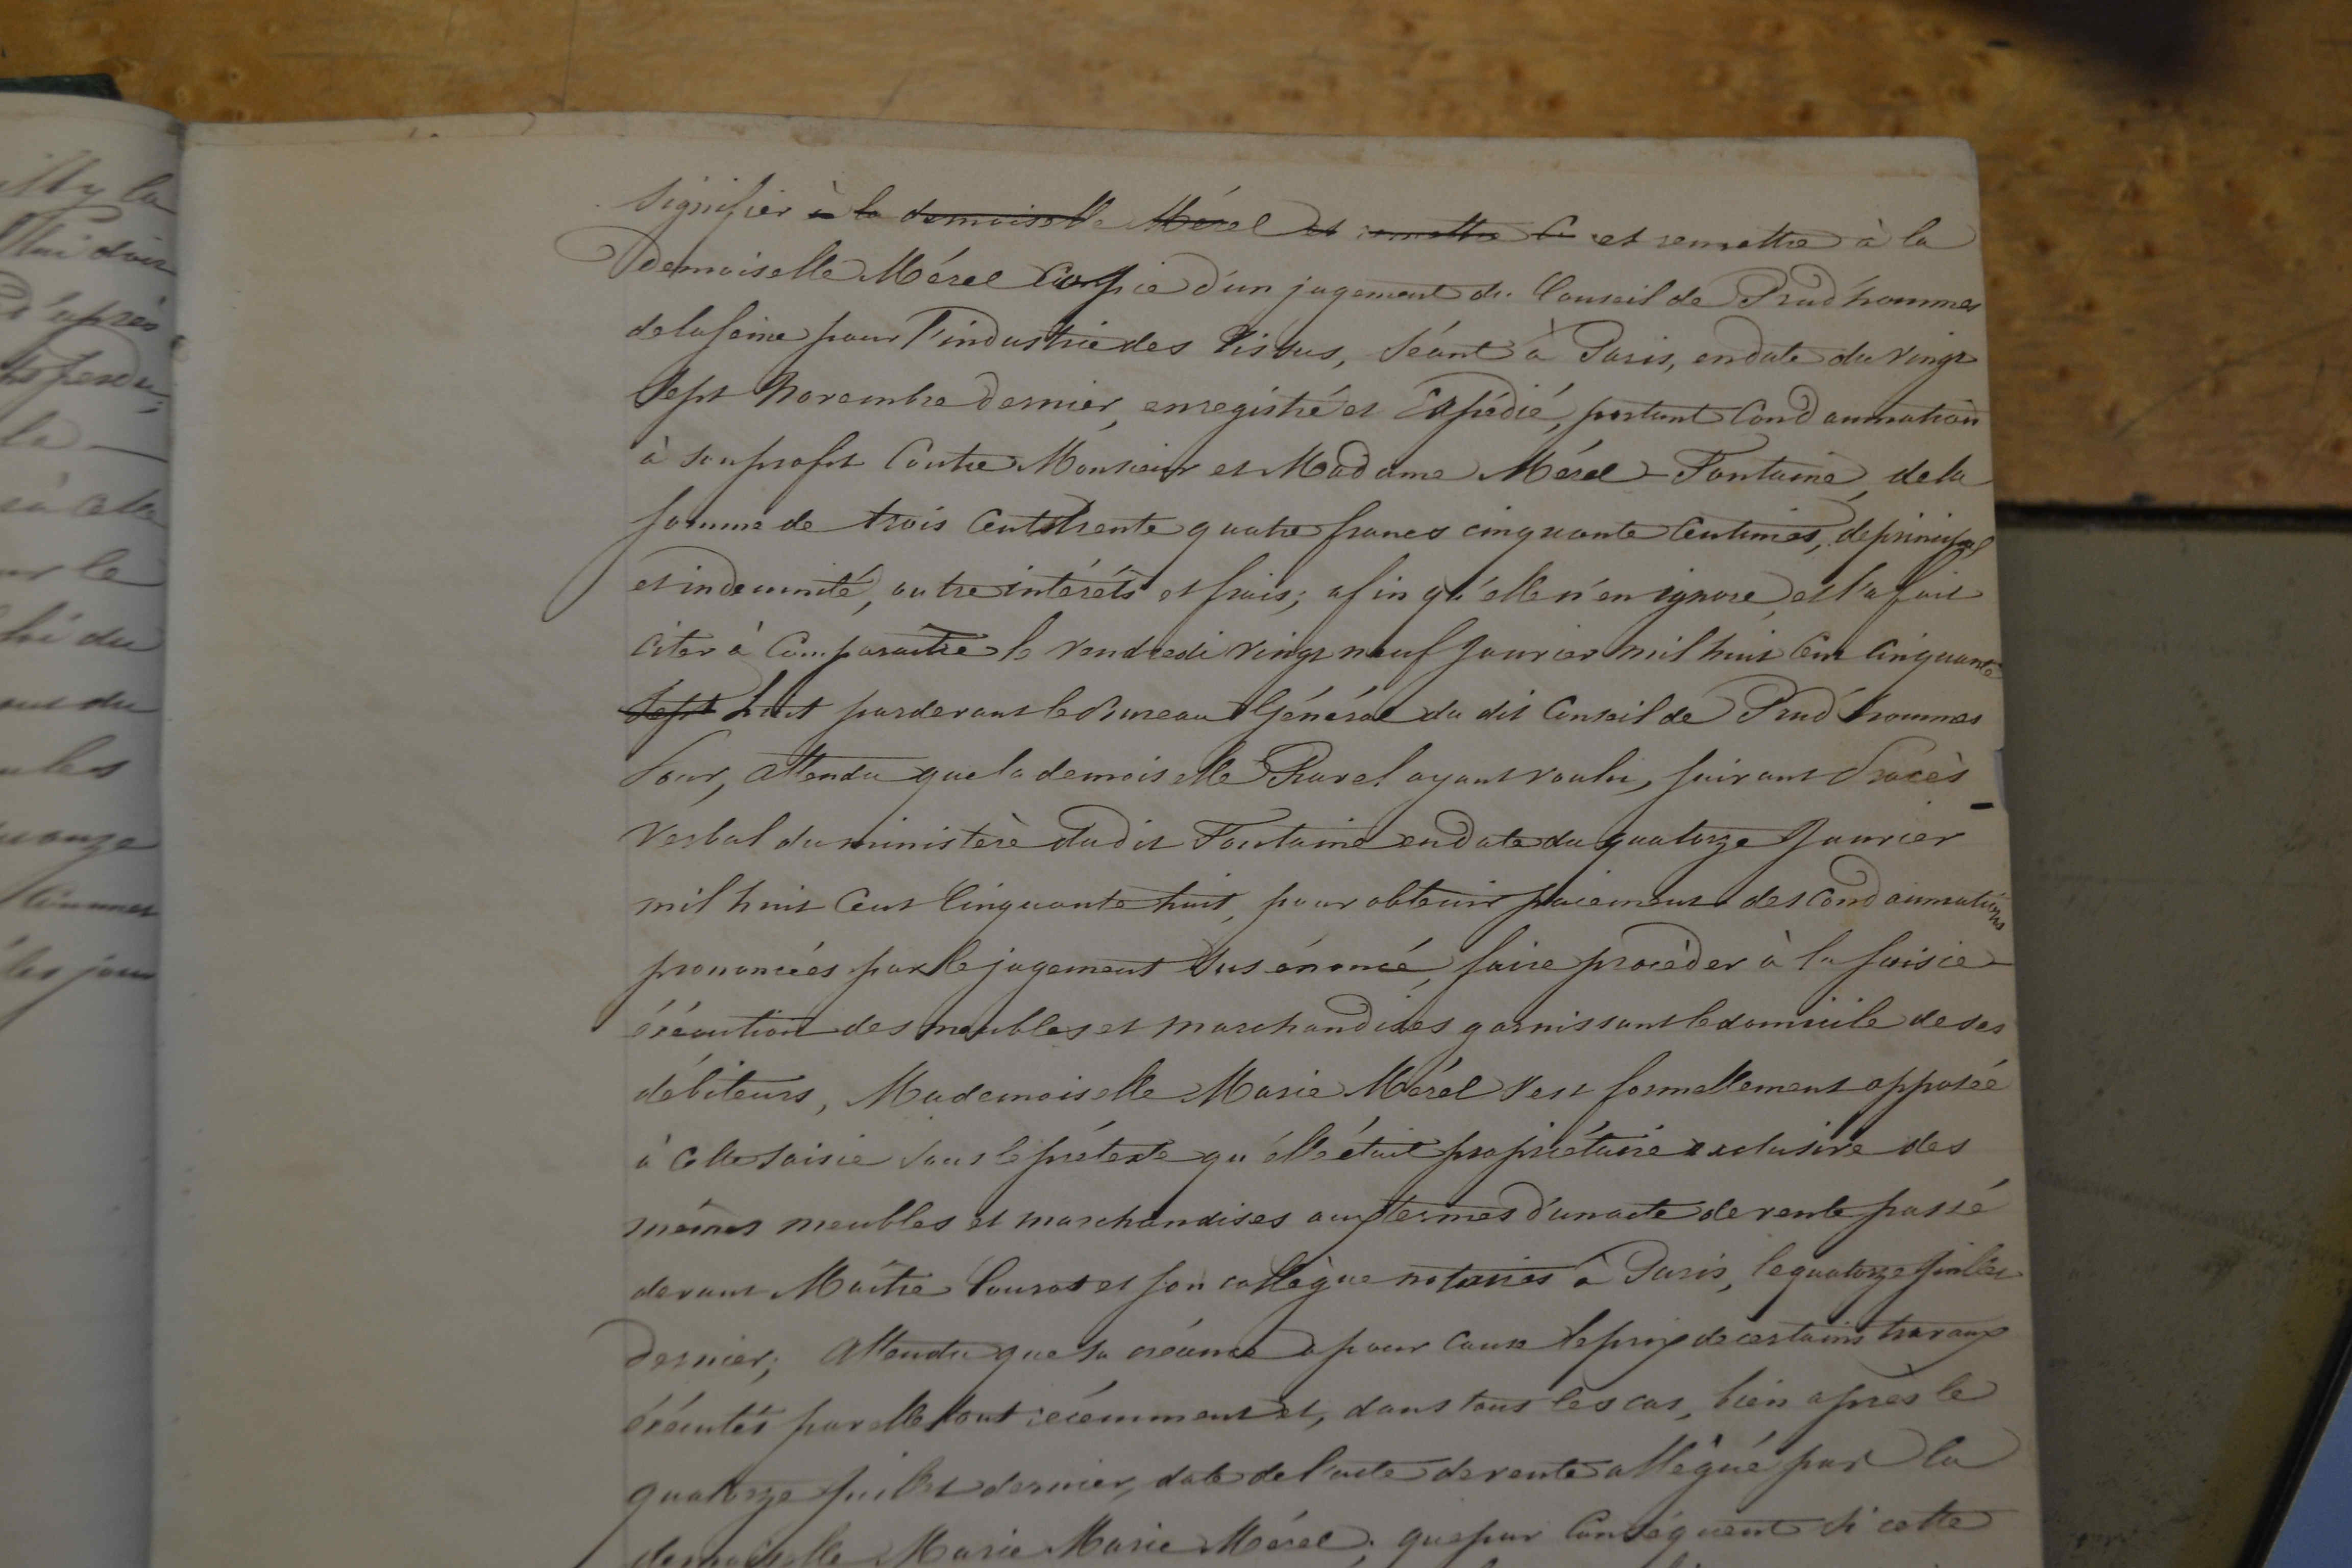 illy la
lui doit
d'après
la
le
lui du
du
les
onze
les jour
signifier à la demoiselle Mérel et remettre C et remettre à la
demoiselle Mérel Copie d'un jugement du Conseil de Prud'hommes
de la seine pour l'industrie des Tissus, séant à Paris, en date du vingt
sept Novembre dernier, enregistré et Expédié, portant Condamnation
à son profit Contre Monsieur et Madame Mérel-Fontaine, de la
somme de trois Cent trente quatre francs cinquante Centimes, de principal
et indemnité, outre intérêts et frais; afin qu'elle n'en ignore, et l'a fait
Citer à Comparaître le vendredi vingt neuf Janvier mil huit Cent Cinquante
sept huit pardevant le Bureau Général du dit Conseil de Prud'hommes
Pour, Attendu que la demoiselle Ravel ayant voulu, suivant Procès
verbal du ministère dudit Fontaine en date du quatorze Janvier
mil huit Cent Cinquante huit, pour obtenir paiement des Condamnations
prononcées par le jugement sus énoncé, faire procèder à la saisie
éxécution des meubles et marchandises garnissant le domicile de ses
débiteurs, Mademoiselle Marie Mérel s'est formellement opposée
à Cette saisie sous le prétexte qu'elle était propriétaire exclusive des
mêmes meubles et marchandises aux termes d'un acte de vente passé
devant Maître et son collègue notaires à Paris, le quatorze juillet
dernier; Attendu que sa créance a pour Cause le prix de certains travaux
éxécutés par elle tout récemment et, dans tous les cas, bien après le
quatorze Juillet dernier, date de l'acte de vente allégué par la
demoiselle Marie Marie Mérel; que par Conséquent si cette